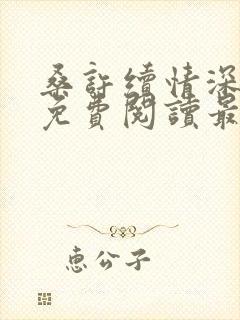 桑許續情深
免費閱讀最
惠公子